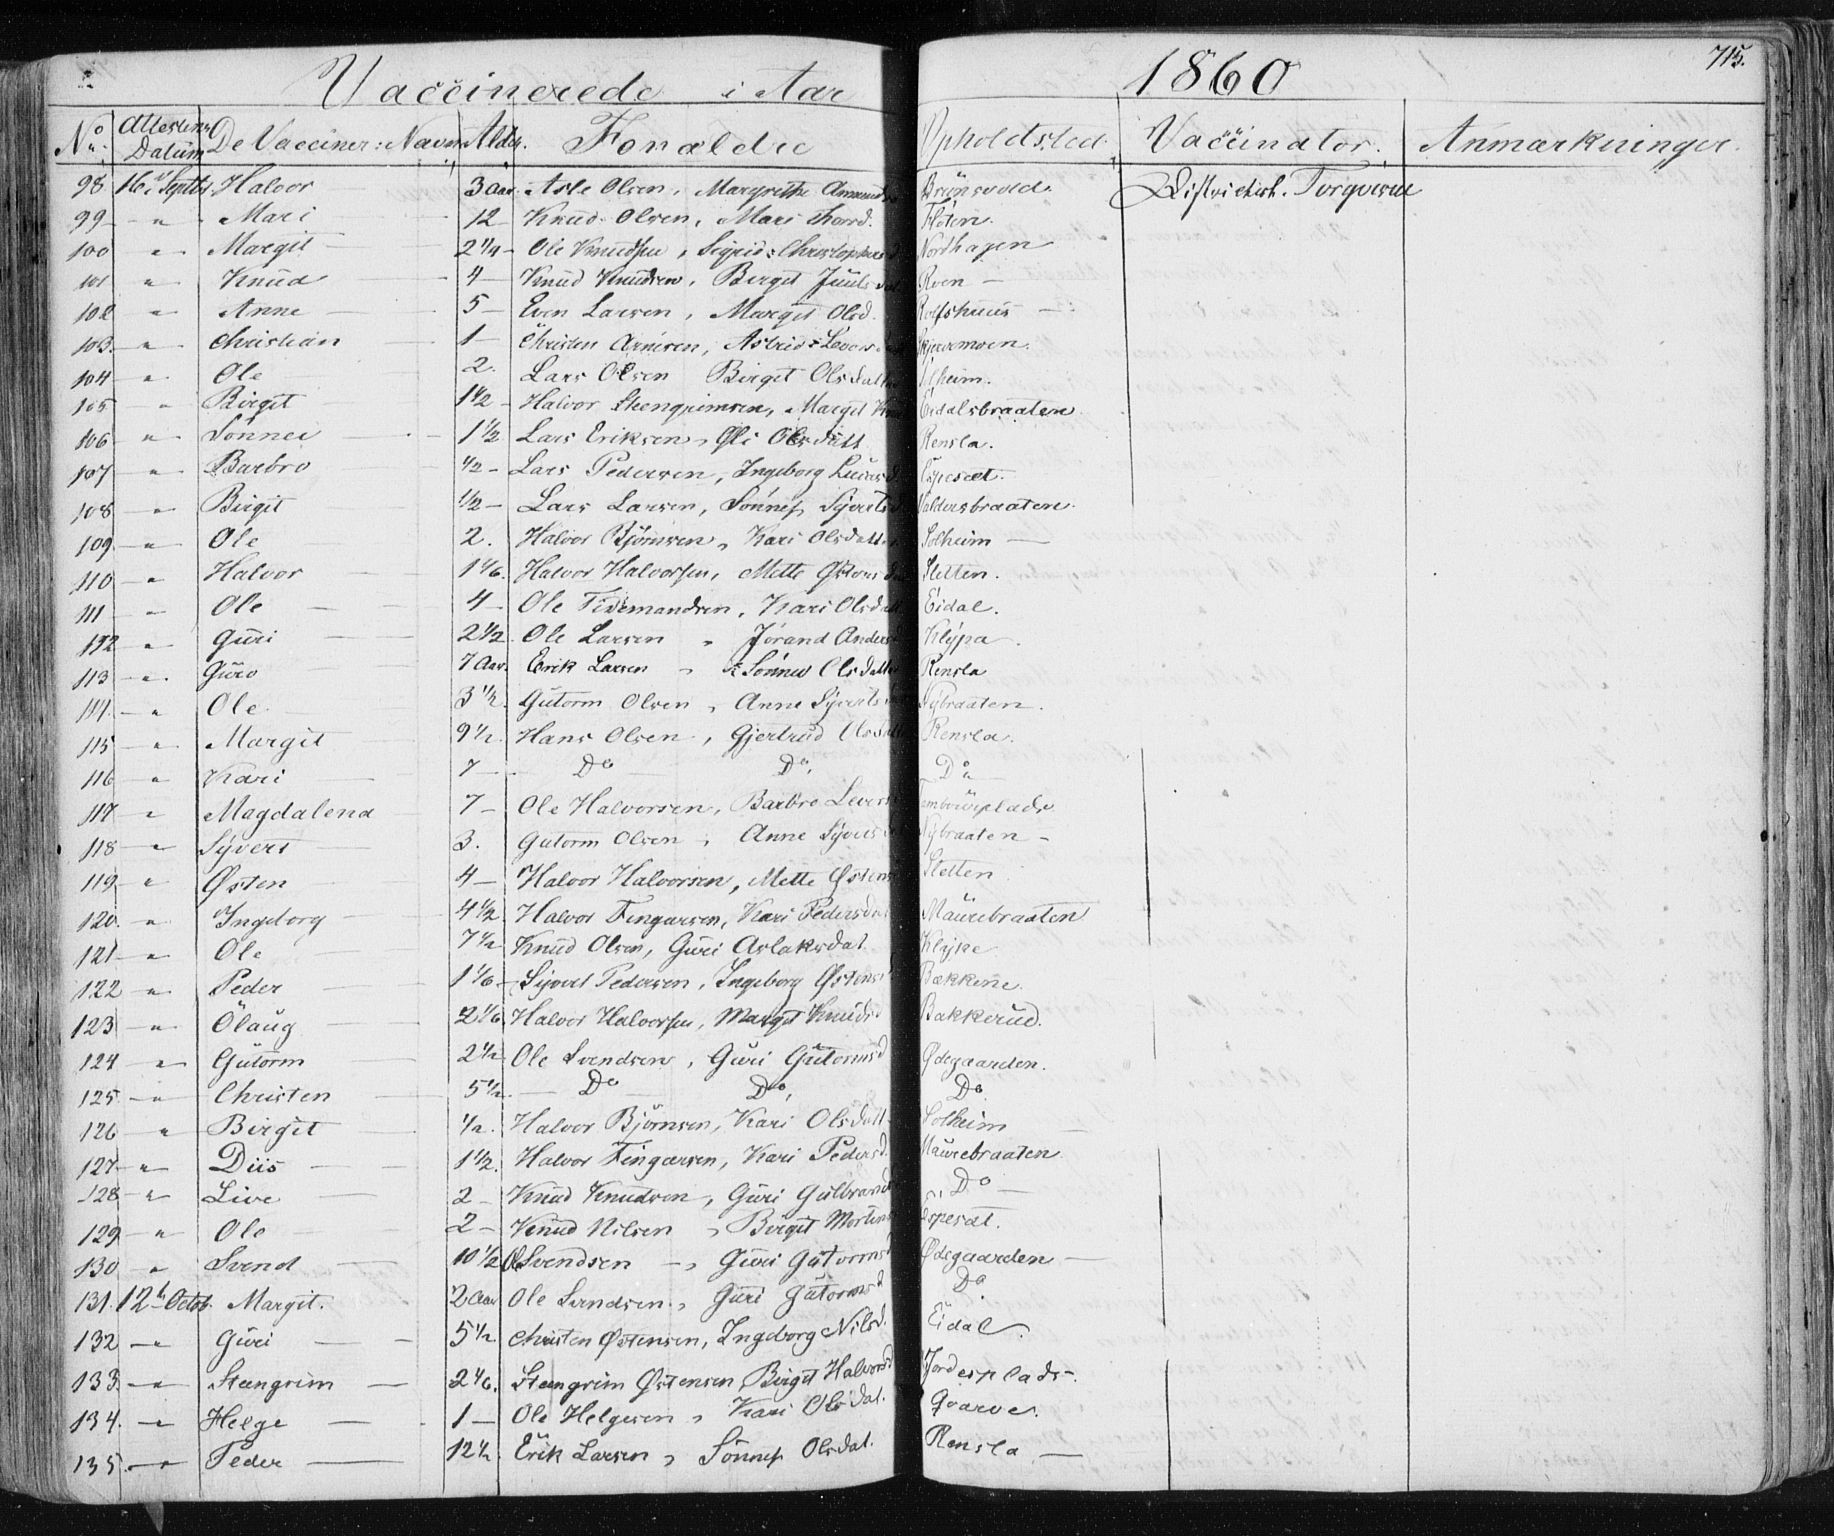 Vaccinerede i Aar 1860 715.
No Attestens Datum De Vacciner: Navn Alder. Forældre Opholdsted Vaccinator. Anmærkninger.
98. 16 Septbr Halvor 3 Aar. Asle Olsen, Margrethe Brünsvold. Distriktsl. Torgersen
99 " Mari 12 Knud Olsen, Mari Thord. Fløten.
100 " Margit 2 1/4 Ole Knudsen, Sigrid Christophersd Nordhagen
101 " Knud 4 Knud Knudsen, Birgit Juulsdat Roen
102 " Anne 5 Even Larsen, Margit Olsd. Rolfshuus
103. " Christian 1 Christen Arnesen, Astrid
104 " Ole 2. Lars Olsen Birget Olsdatter
105 " Birgit 1 1/2 Halvor Stengrimsen, Margit Knud Eidalsbraaten
106 " Sønnei 1 1/2 Lars Eriksen, Øli Olsdatt Rensla.
107 " Barbro 1/2 Lars Pedersen, Ingeborg Espeset.
108 " Birgit 1/2 Lars Larsen, Sønnef Syverts Valdersbraaten.
109 " Ole 2. Halvor Bjørnsen, Kari Olsdatter Solheim
110 " Halvor 1 1/6. Halvor Halvorsen, Mette Østens Sletten.
111 " Ole 4 Ole Tidemandsen, Kari Olsdatt Eidal.
112 " Guri 2 1/2. Ole Larsen, Jørand Anders Klÿpa
113 " Guro 7 Aar. Erik Larsen, Sønnev Olsdatter Rensla
114. " Ole 3 1/2. Gutorm Olsen, Anne Syverts Nÿbraaten.
115 " Margit 9 1/2. Hans Olsen, Gjertrud Olsdatt Rensla.
116 " Kari 7 Do Do, Do
117 " Magdalena 7 Ole Halvorsen, Barbro
118 " Sÿvert 3. Gutorm Olsen, Anne Syvers Nÿbraaten
119 " Østen 4 Halvor Halvorsen, Mette Østens Sletten
120. " Ingeborg 4 1/2. Halvor Fingarsen, Kari Pedersdat Maurebraaten
121 " Ole 7 1/2 Knud Olsen, Guri Aslaksdat. Klÿpe
122 " Peder 1 1/6 Syvert Pedersen, Ingeborg Østens Bækkene.
123 " Ølaug 2 1/6 Halvor Halvorsen, Margit Knudsd Bakkerud.
124 " Gutorm 2 1/2 Ole Svendsen, Guri Gutormsd Ødegaarden.
125 " Christen 5 1/2. Do Do, Do.
126 " Birgit 1/2. Halvor Bjørnsen, Kari Olsdatt Solheim
127 " Diis 1 1/2. Halvor Fingarsen, Kari Pedersd. Maurebraaten
128 " Live 2 Knud Knudsen, Guri Gulbrand Do
129 " Ole 2 Knud Nilsen, Birgit Mortens Espeset.
130 " Svend 10 1/2 Ole Svendsen, Guri Gutormsd Ødegaarden
131. 12te Octob. Margit. 2 Aar Ole Svendsen, Guri Gutormsd Do.
132 " Guri 5 1/2 Christen Østensen, Ingeborg Nilsd. Eidal.
133. " Steengrim 2 1/6. Steengrim Østensen Birgit Halvorsd
134. " Helge 1 Ole Helgesen, Kari Olsdat. Gaarve.
135. " Peder 12 1/2. Erik Larsen, Sønnef Olsdat. Rensla